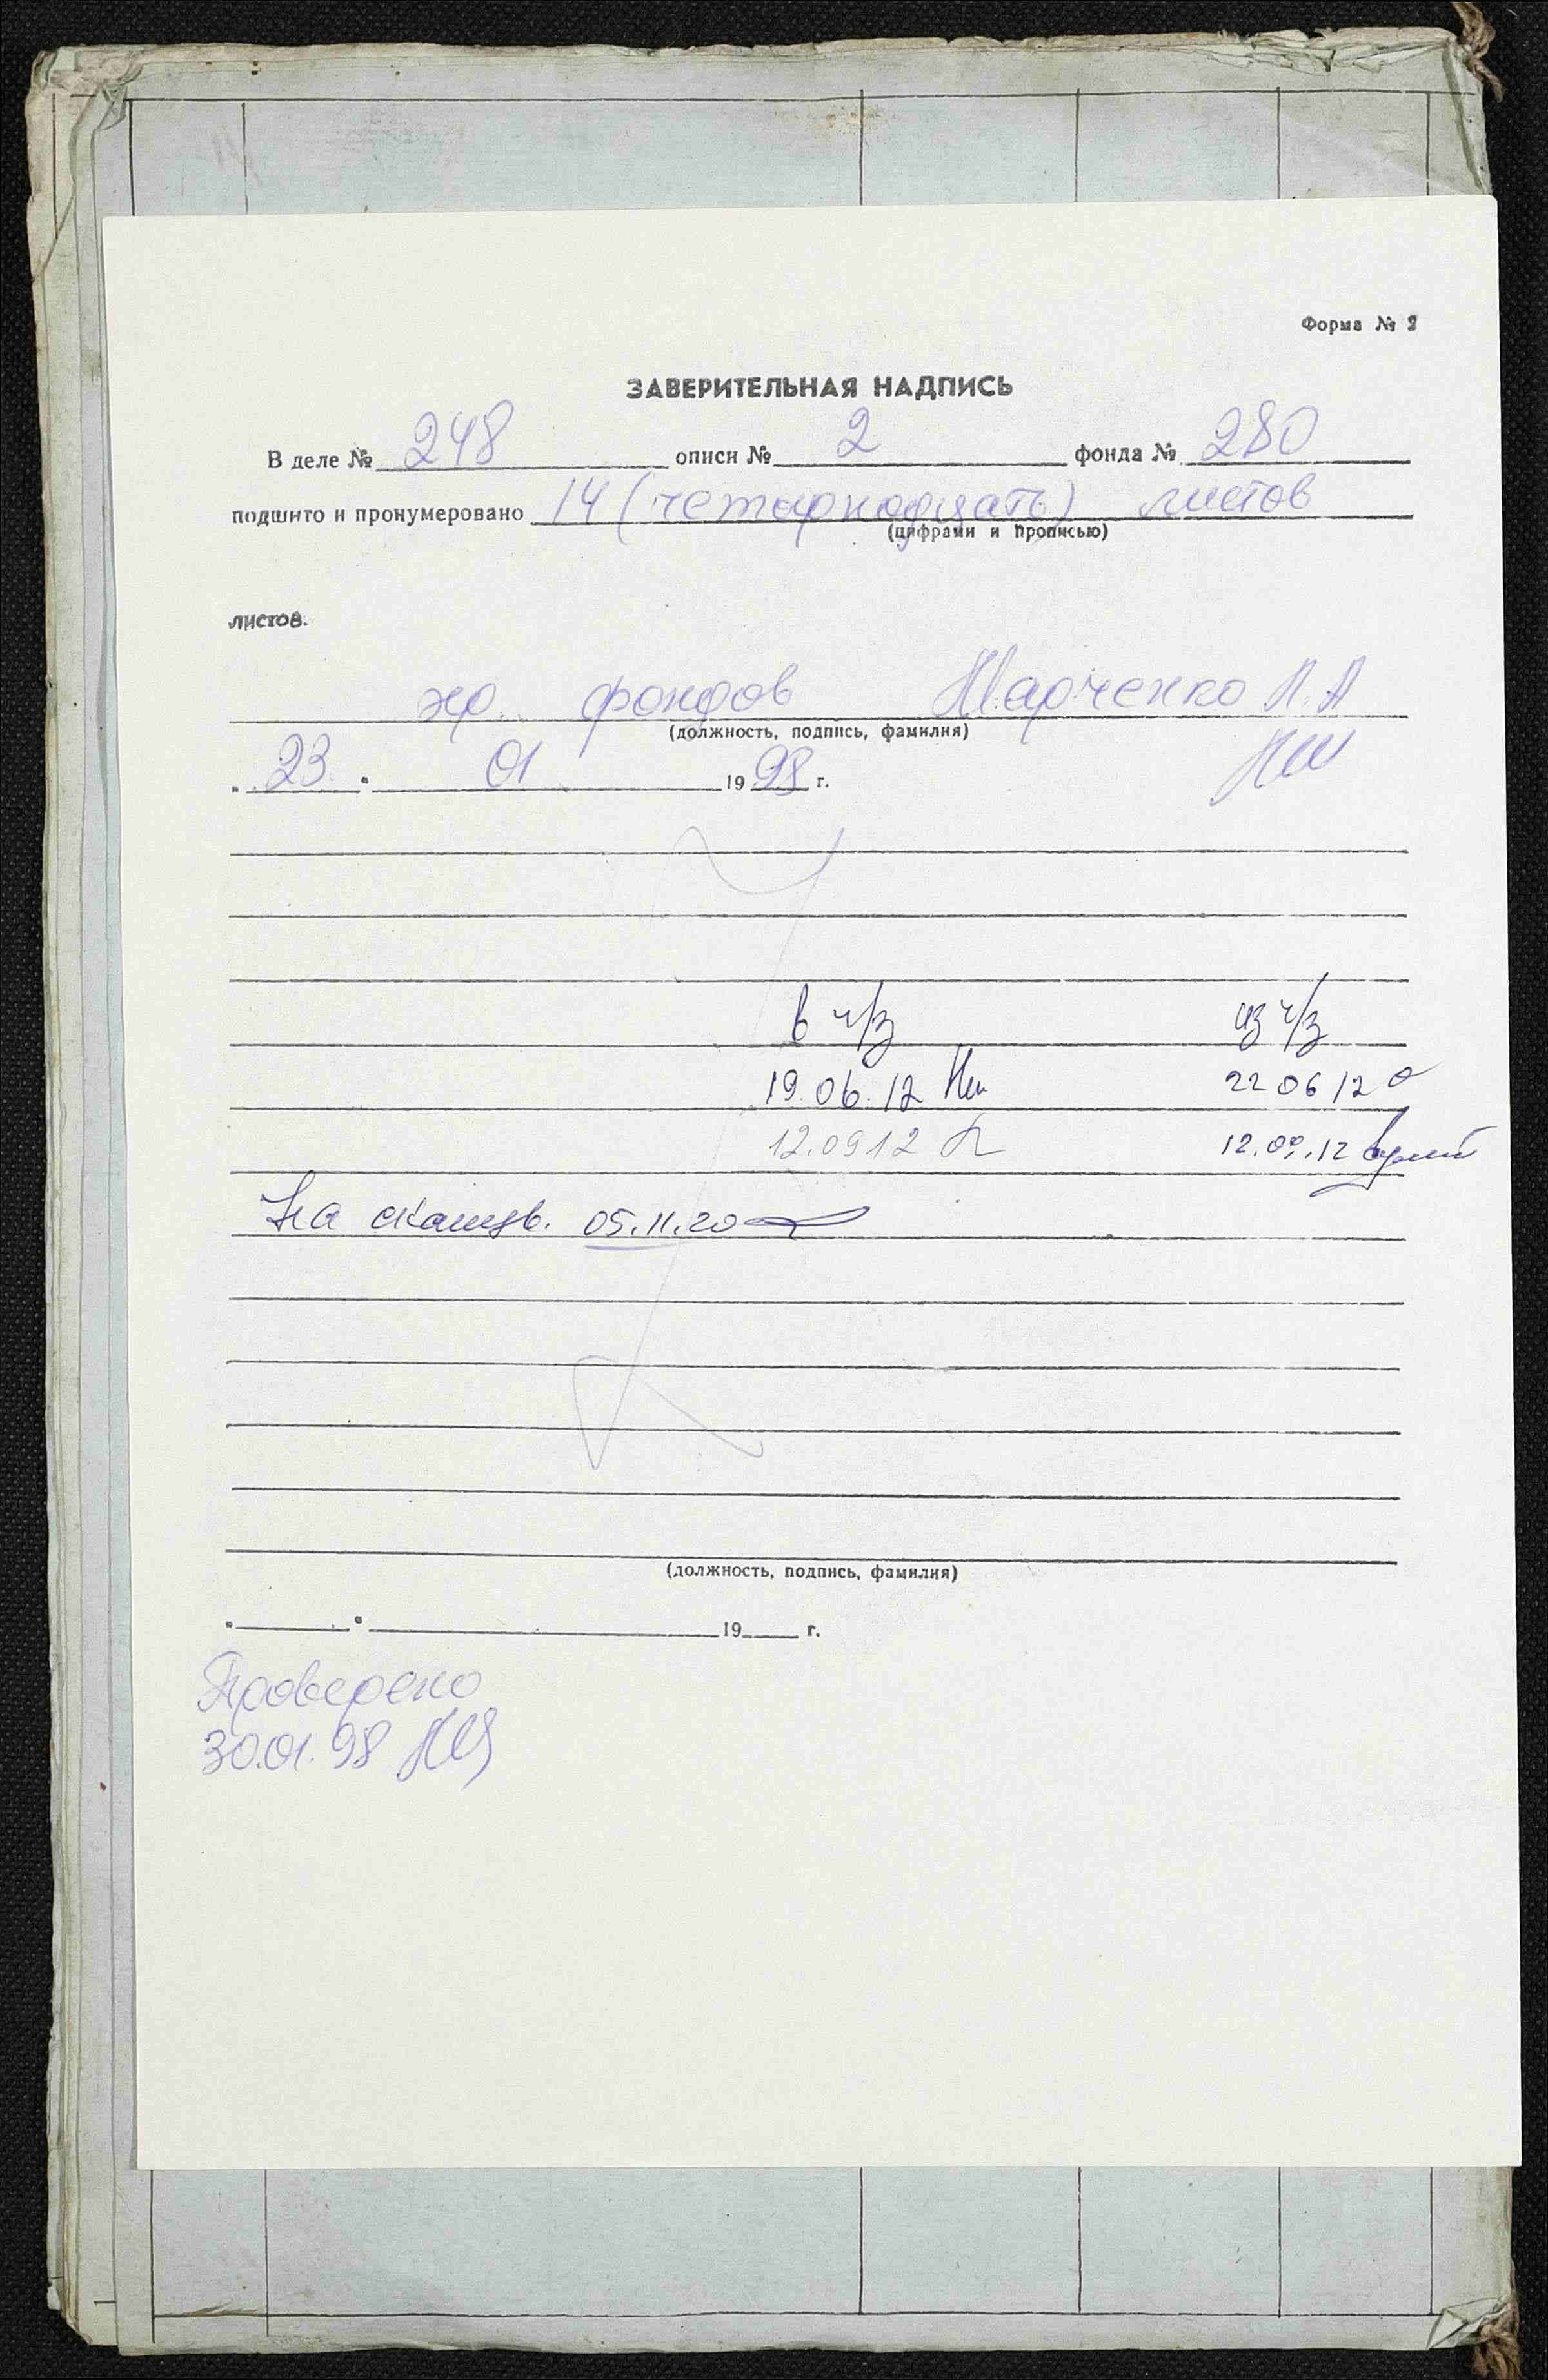 Форма № 2
ЗАВЕРИТЕЛЬНАЯ НАДПИСЬ
В деле № 248 описи № 2 фонда № 280
подшито и пронумеровано 14 (четырнадцать) листов
(цифрами и прописью)
листов.
хр. фондов Марченко Л. А
(должность, подпись, фамилия)
" 23 " 01 1998 г.
в ч/з из ч/з
19.06.12 22 06 12
12.09 12 12.09.12
На сканир. 05.11.20
(должность, подпись, фамилия)
" " 19 г.
Проверено
30.01.98